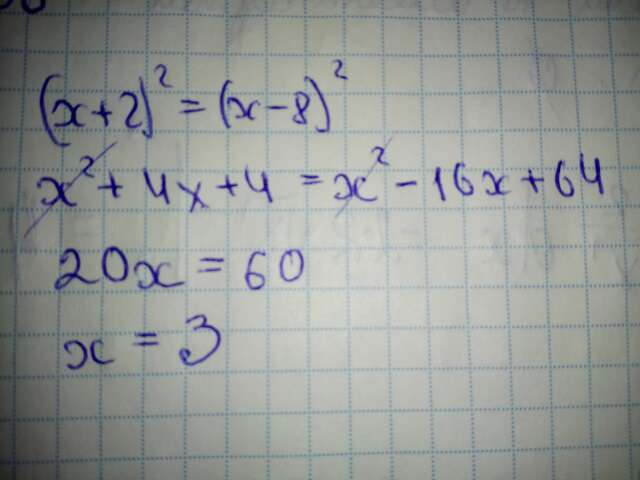 (x+2)² = (x-8)²
x² + 4x + 4 = x² - 16x + 64
20x = 60
x = 3